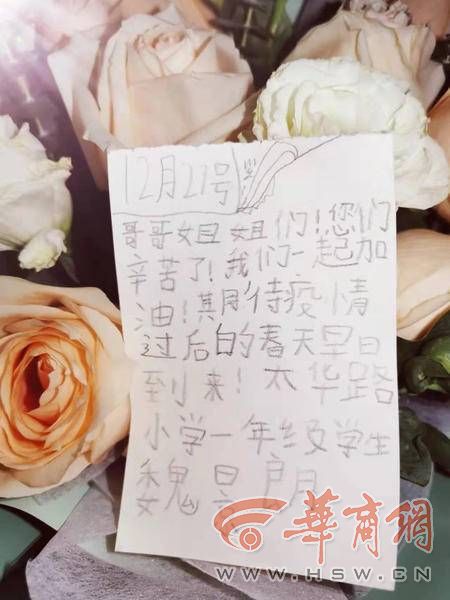 12月21号
哥哥姐姐们!您们
辛苦了!我们一起加
油!期待疫情
过后的春天早日
到来!太华路
小学一年级学生
魏昱朗
華商網
WWW.HSW.CN